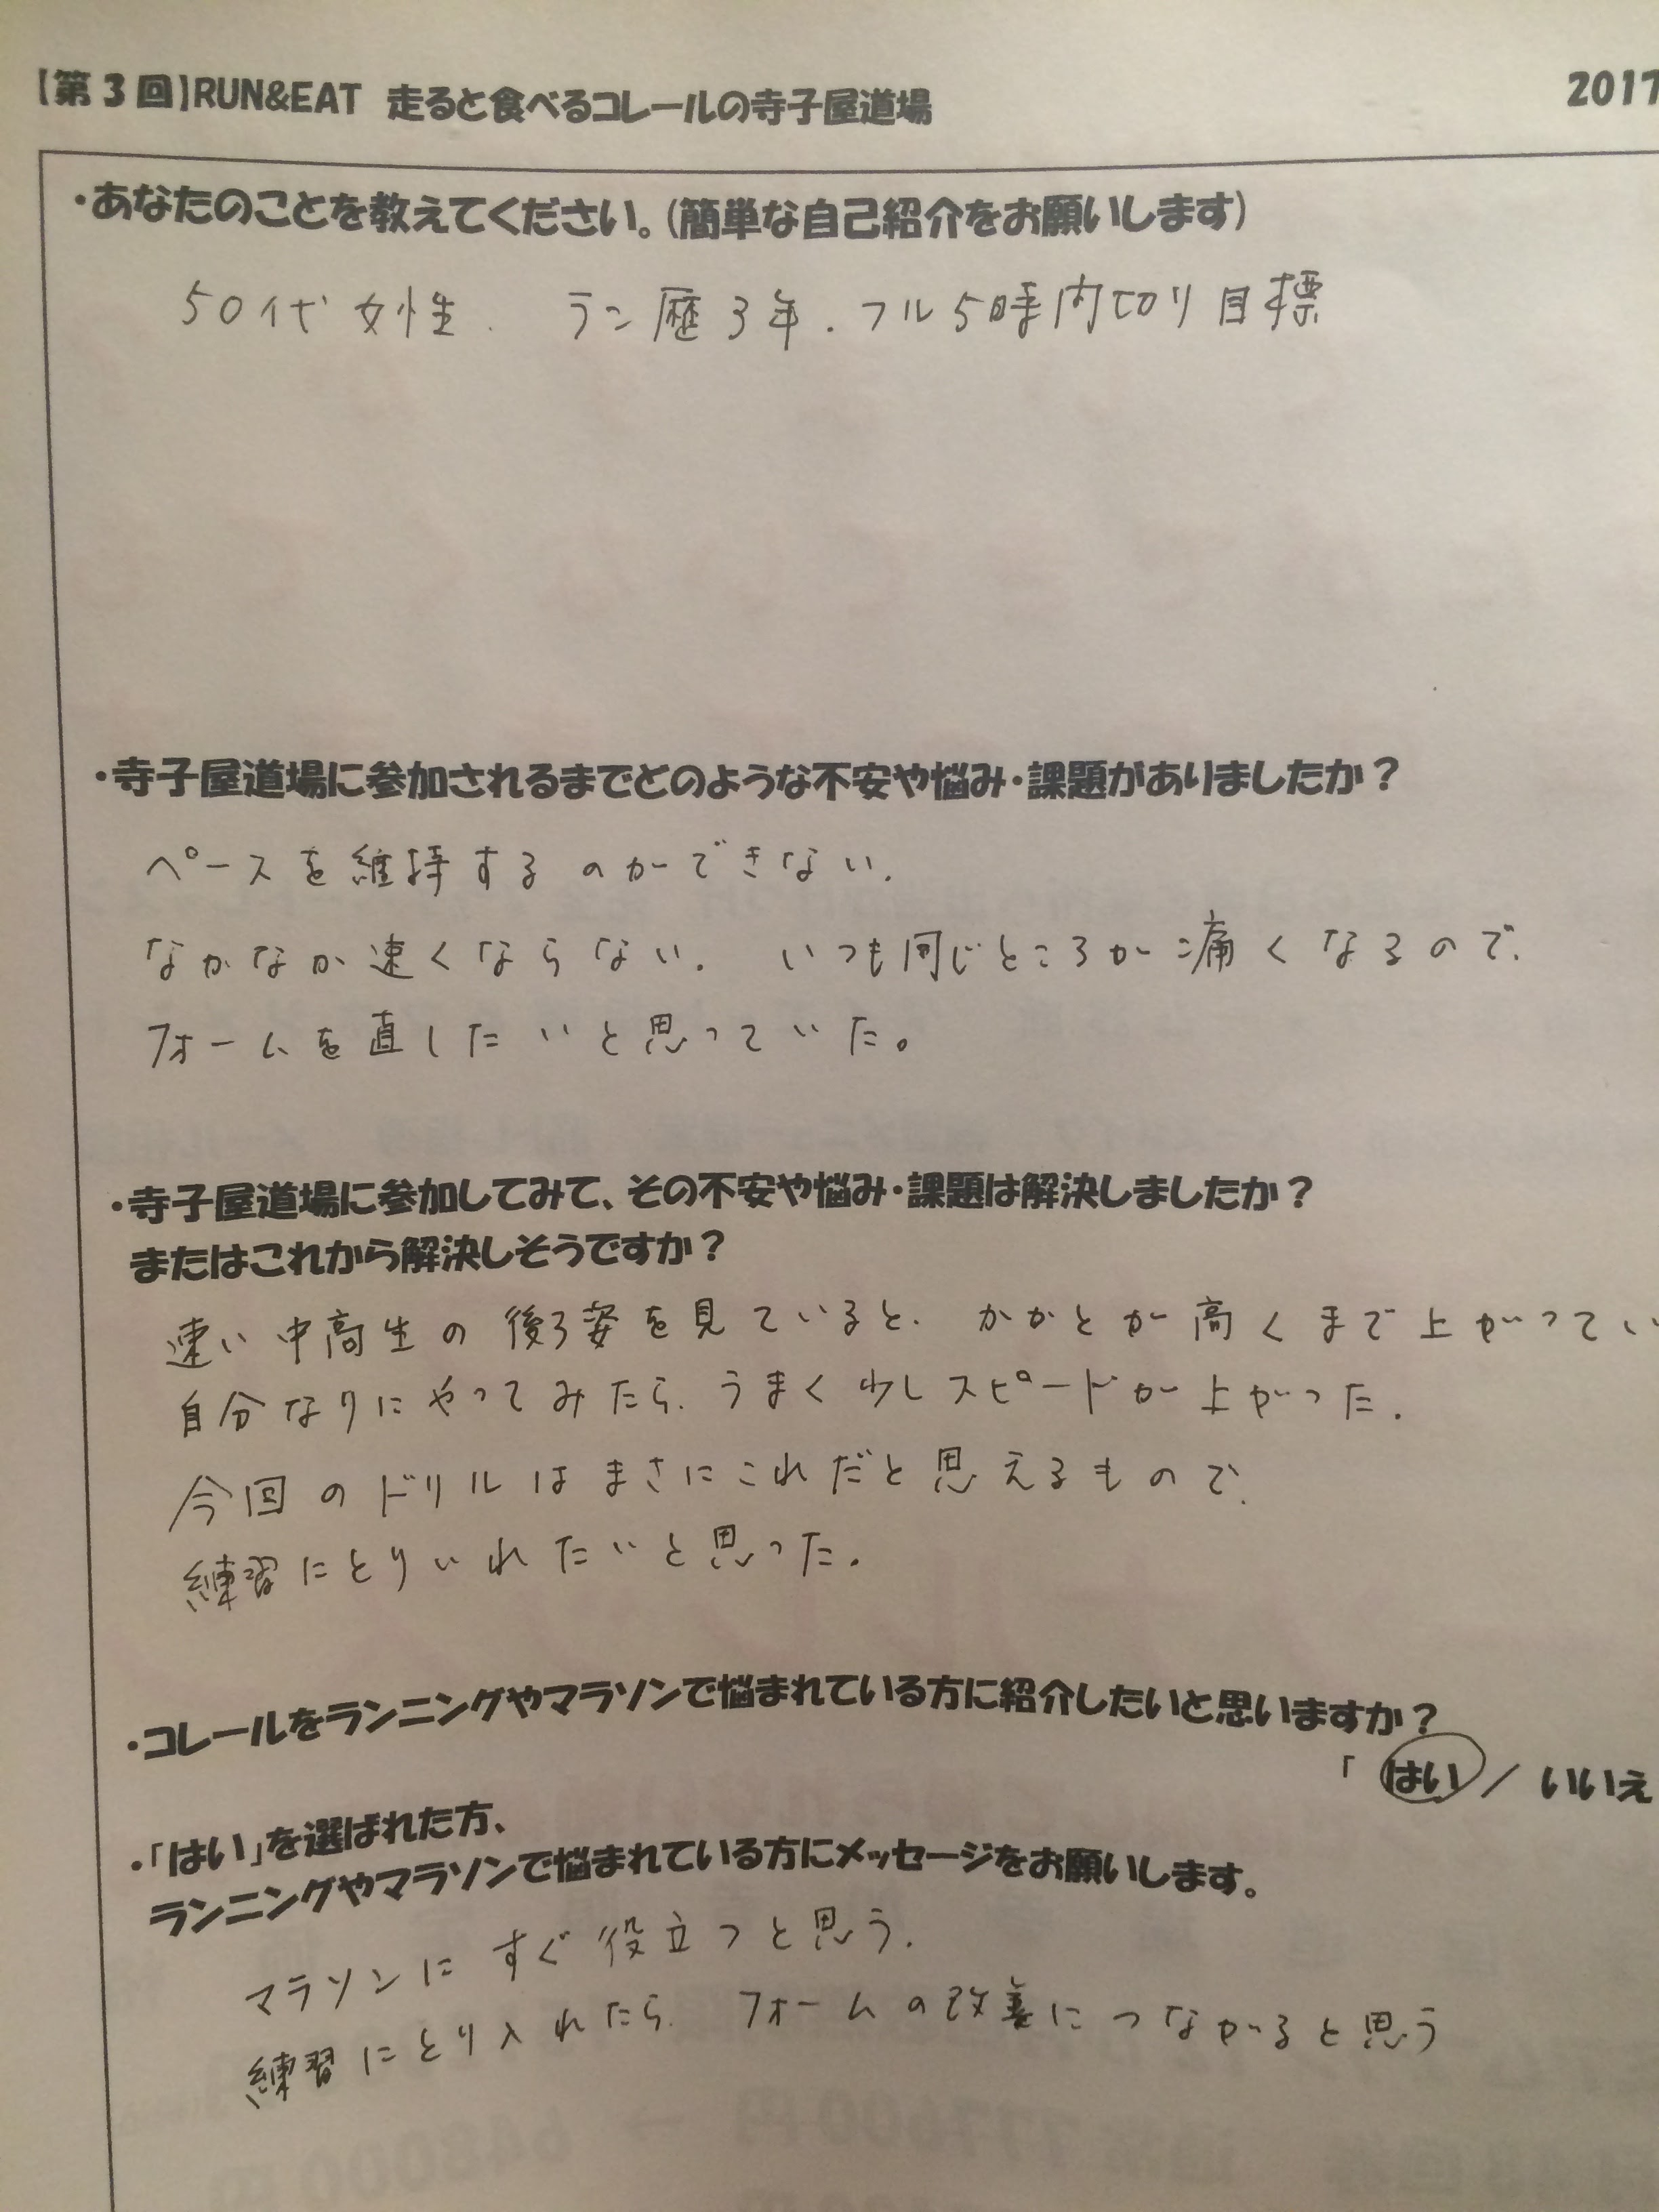 【第3回】RUN&EAT 走ると食べるコレールの寺子屋道場 2017
・あなたのことを教えてください。(簡単な自己紹介をお願いします)
50代女性. ラン歴3年.フル5時間内切り目標
・寺子屋道場に参加されるまでどのような不安や悩み・課題がありましたか?
ペースを維持するのができない.
なかなか速くならない. いつも同じところが痛くなるので、
フォームを直したいと思っていた。
・寺子屋道場に参加してみて、その不安や悩み・課題は解決しましたか?
またはこれから解決しそうですか?
速い中高生の後ろ姿を見ていると、かかとが高くまで上がってい
自分なりにやってみたら、うまく少しスピードが上がった.
今回のドリルはまさにこれだと思えるもので、
練習にとりいれたいと思った.
・コレールをランニングやマラソンで悩まれている方に紹介したいと思いますか?
「 はい / いいえ
・「はい」を選ばれた方、
ランニングやマラソンで悩まれている方にメッセージをお願いします。
マラソンにすぐ役立つと思う.
練習にとり入れたら、フォームの改善につながると思う